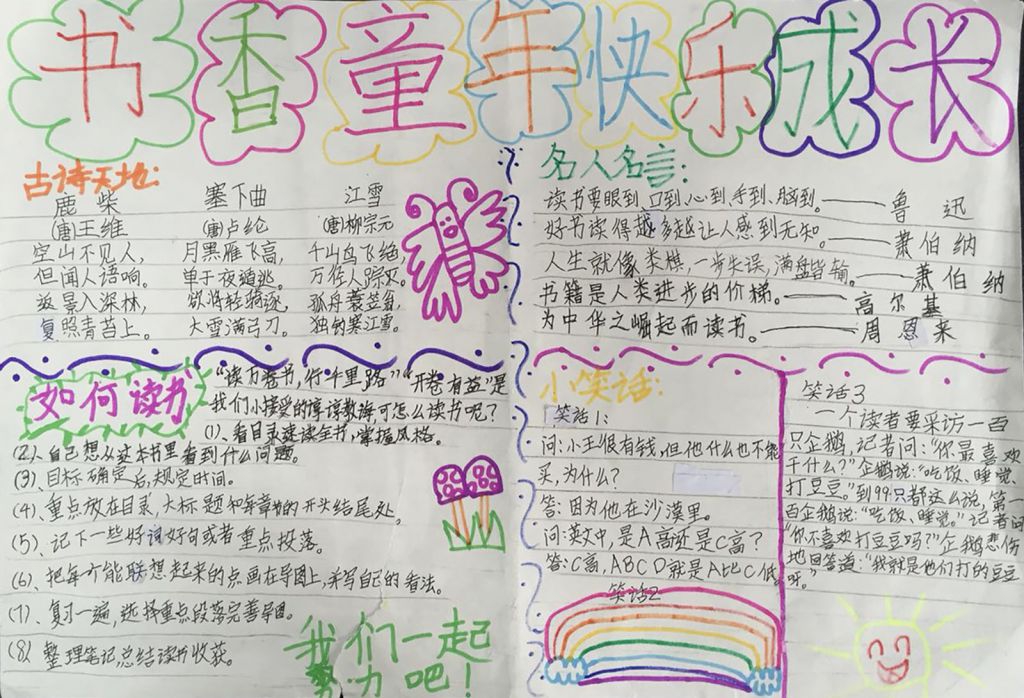 书香童年快乐成长
古诗天地:
鹿柴
(唐)王维
空山不见人，
但闻人语响。
返景入深林，
复照青苔上。
塞下曲
(唐)卢纶
月黑雁飞高，
单于夜遁逃。
欲将轻骑逐，
大雪满弓刀。
江雪
(唐)柳宗元
千山鸟飞绝，
万径人踪灭。
孤舟蓑笠翁，
独钓寒江雪。
名人名言:
读书要眼到、口到、心到、手到、脑到。——鲁迅
好书读得越多越让人感到无知。——萧伯纳
人生就像类棋，一步失误，满盘皆输。——萧伯纳
书籍是人类进步的价梯。——高尔基
为中华之崛起而读书。——周恩来
如何读书
“读万卷书，行千里路”“开卷有益”是
我们小接受的谆谆教诲可怎么读书呢？
(1)、看目录速读全书，掌握风格。
(2)、自己想从这本书里看到什么问题。
(3)、目标确定后，规定时间。
(4)、重点放在目录、大标题和每章的开头结尾处。
(5)、记下一些好词好句或者重点段落。
(6)、把每个能联想起来的点画在导图上，并写自己的看法。
(7)、复习一遍，选择重点段落完善导图。
(8)、整理笔记总结读书收获。
我们一起
努力吧！
小笑话:
笑话1:
问:小王很有钱，但他什么也不能
买，为什么？
答:因为他在沙漠里。
问:英文中，是A高还是C高？
答:C高，ABCD就是A比C低
笑话2
笑话3
一个读者要采访一百
只企鹅，记者问:“你最喜欢
干什么？”企鹅说:“吃饭、睡觉、
打豆豆。”到99只都这么说，第一
百企鹅说:“吃饭、睡觉。”记者问
“你不喜欢打豆豆吗？”企鹅悲伤
地回答道:“我就是他们打的豆豆
呀。”